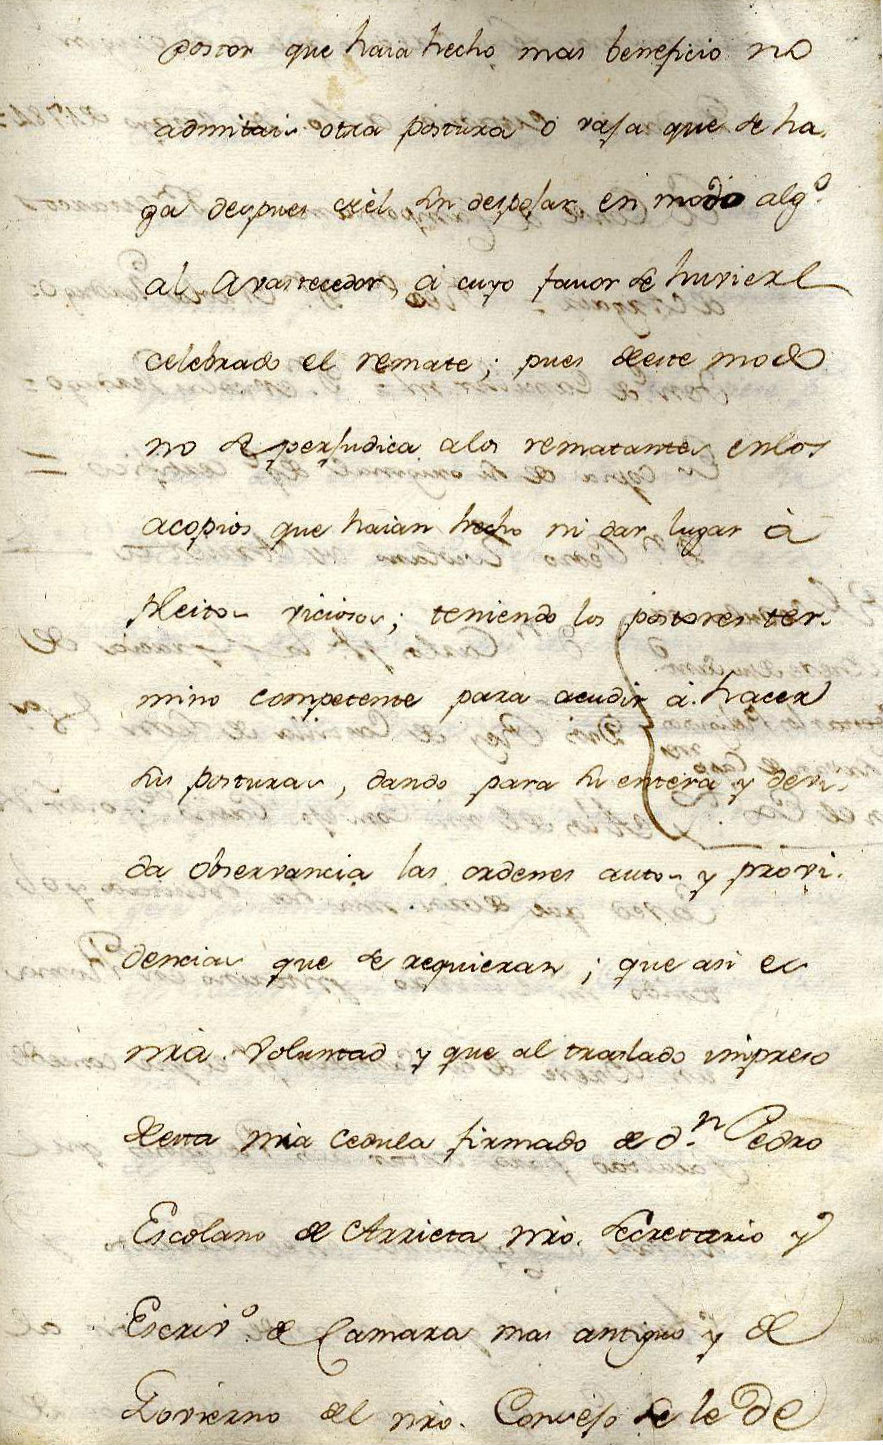 postor que haia hecho mas beneficio no
admitais otra postura o vaja que se ha.
ga despues de èl sin despojar en modo alg.º
al Avastecedor, à cuyo favor se huviere
celebrado el remate; pues de este modo
no se perjudica a los rematantes en los
acopios que haian hecho ni dar lugar à
Pleitos viciosos; teniendo los postores ter-
mino competente para acudir à hacer
sus posturas, dando para su entera y devi-
da observancia las ordenes autos y provi-
dencias que se requieran; que asi es
nrâ. Voluntad y que al traslado impreso
de esta nrâ Cedula firmado de d.n Pedro
Escolano de Arrieta nrô. Secretario y
Escriv.º de Camara mas antiguo y de
Govierno del nrô. Consejo se le De